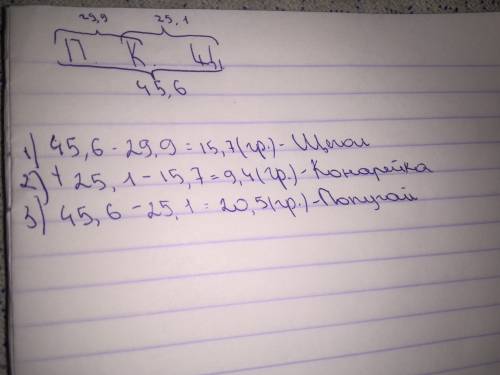 29,9 25,1
П. К. Щ.
45,6
1) 45,6 - 29,9 = 15,7 (гр.) - Щегол
2) + 25,1 - 15,7 = 9,4 (гр.) - Конарейка
3) 45,6 - 25,1 = 20,5 (гр.) - Попугай